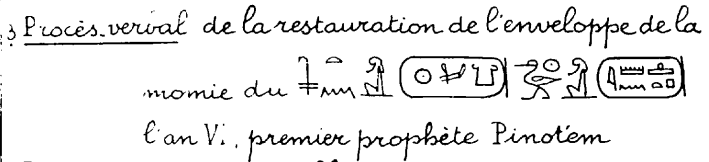 3 Procès-verbal de la restauration de l'enveloppe de la
momie du 𓍹𓇳𓂦𓂓𓍺 𓍹𓇋𓏠𓈖𓊵𓏏𓊪𓍺
l'an VI, premier prophète Pinotem